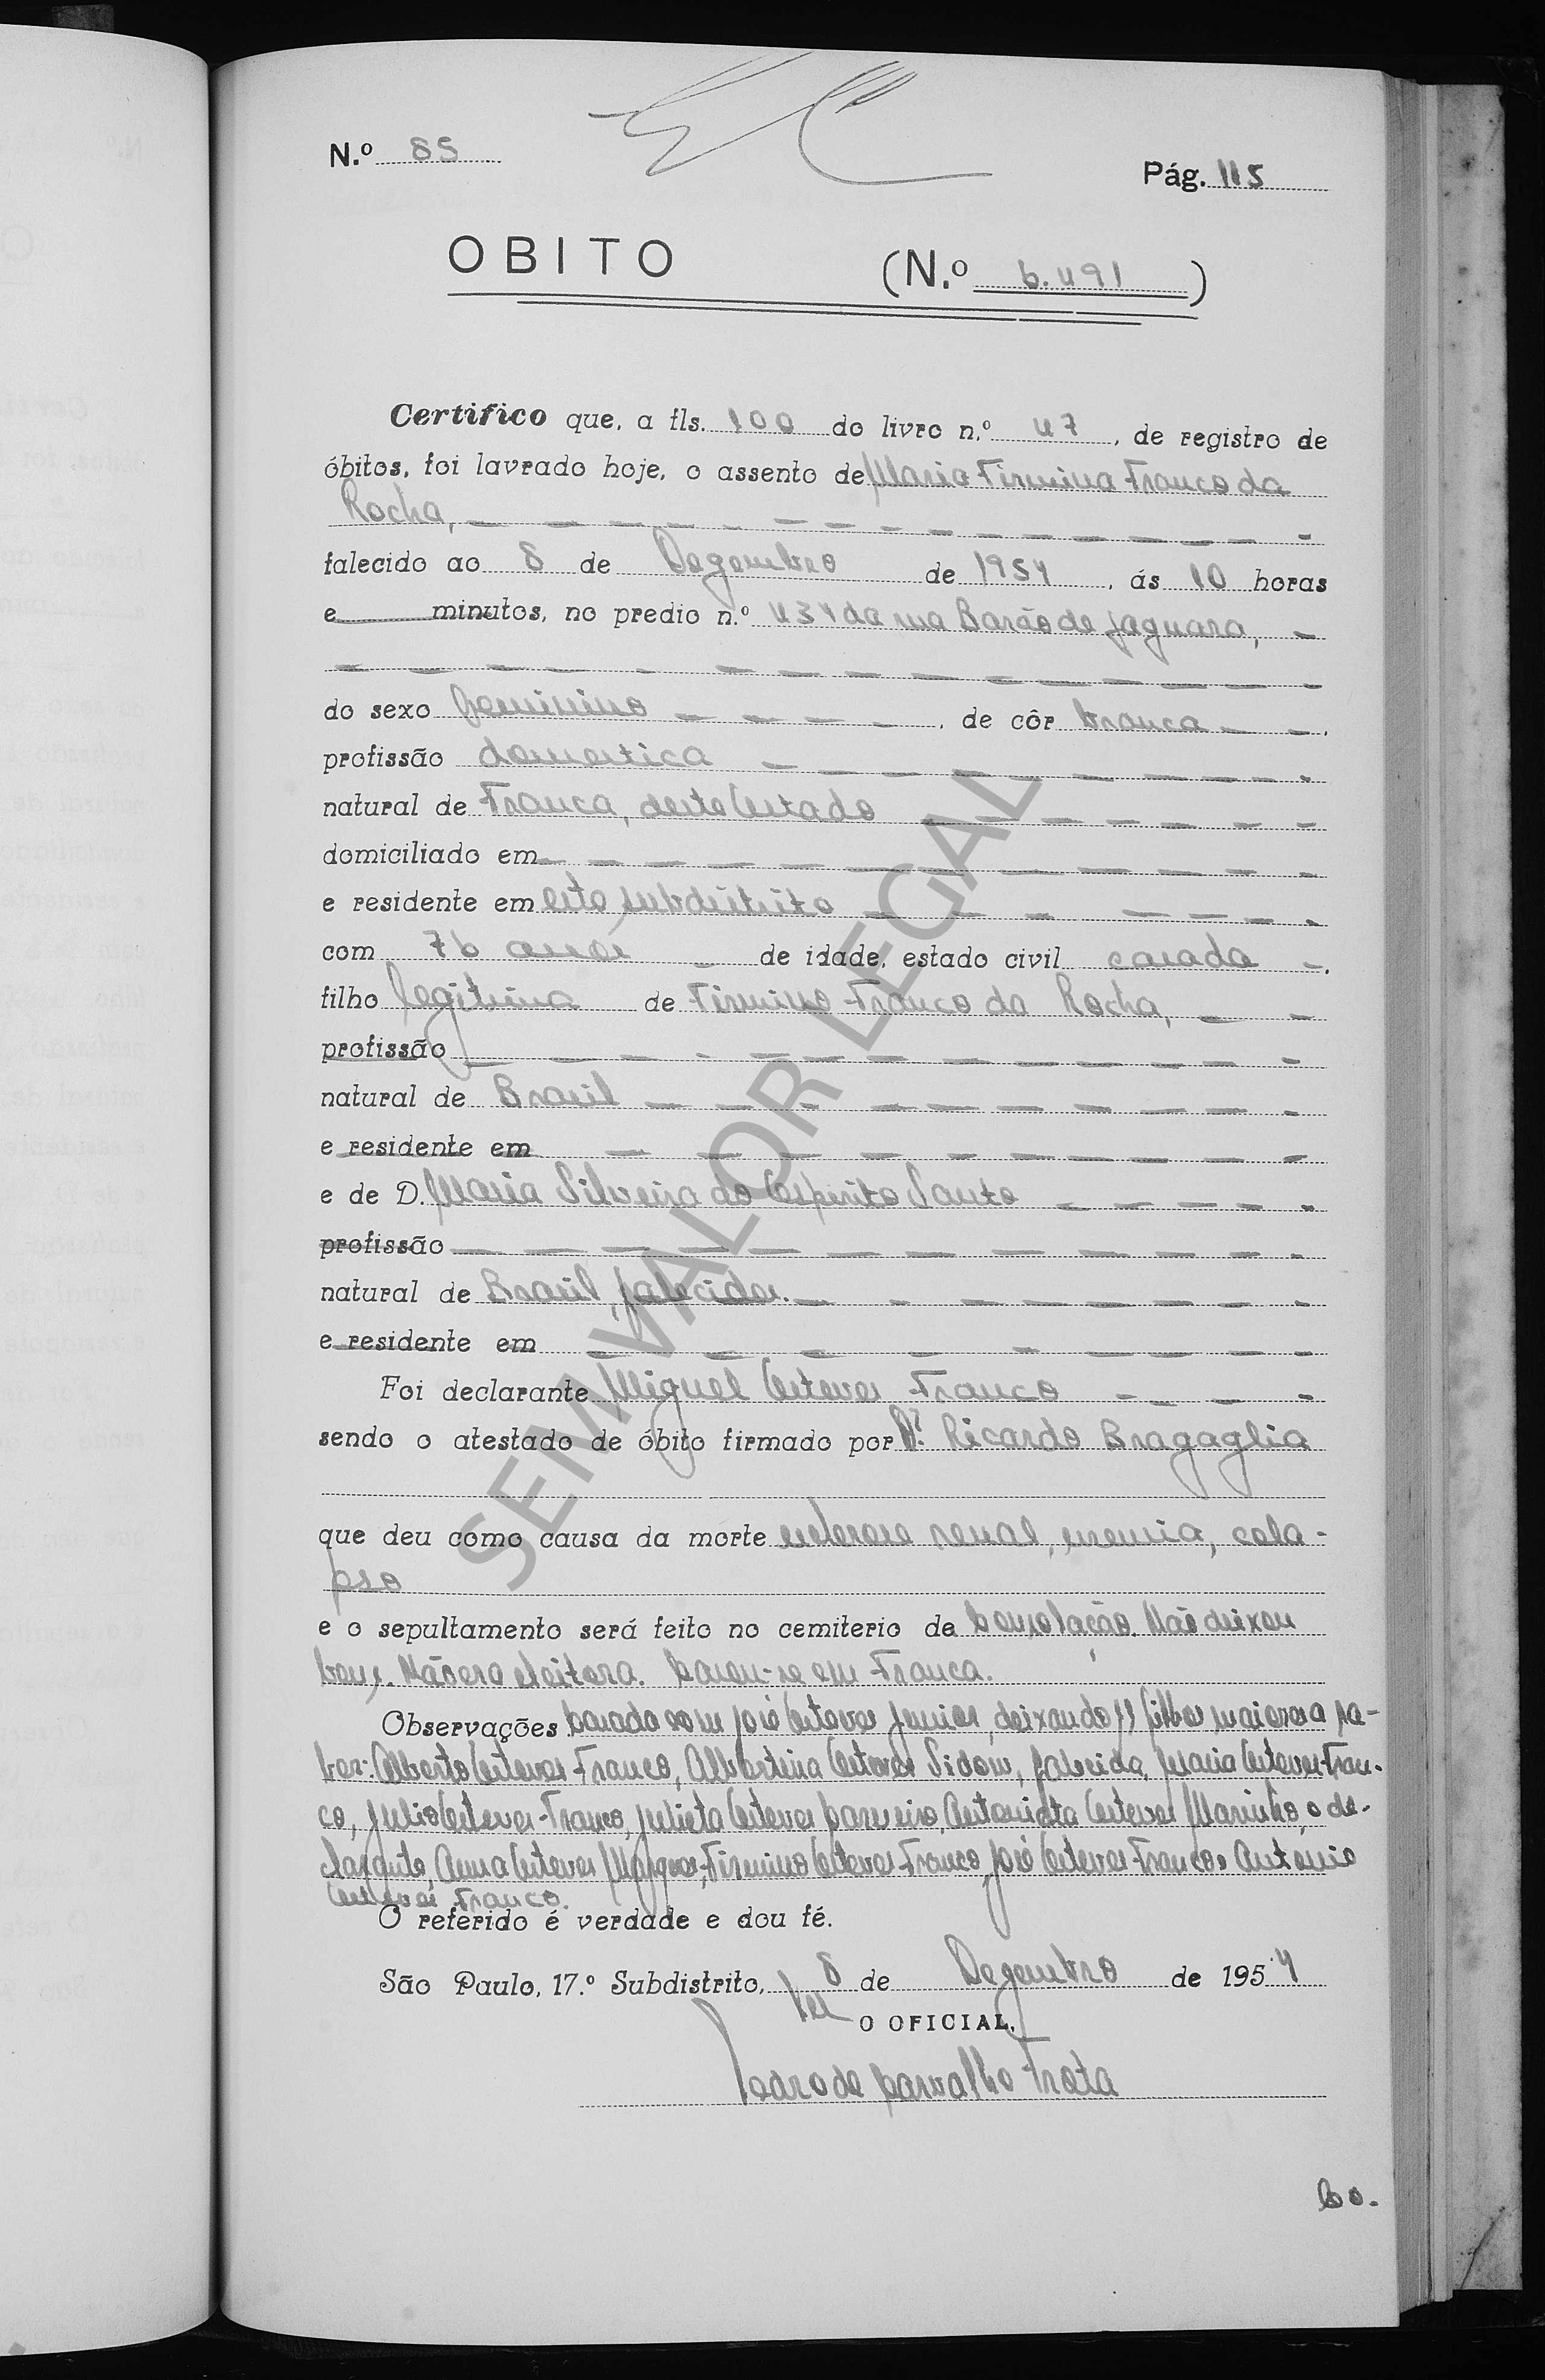 N.º 85
Pág. 115
OBITO (N.º 6.491)
Certifico que, a fls. 100 do livro n.º 47, de registro de
óbitos, foi lavrado hoje, o assento de Maria Firmina Franco da
Rocha,
falecido ao 8 de Dezembro de 1954, ás 10 horas
e minutos, no predio n.º 434 da rua Barão de Jaguara,
do sexo feminino, de côr branca
profissão domestica
natural de Franca, deste Estado
domiciliado em
e residente em este subdistrito
com 76 anos de idade, estado civil casada
filho legitima de Firmino Franco da Rocha,
profissão
natural de Brasil
e residente em
e de D. Maria Silveira do Espirito Santo
profissão
natural de Brasil, falecidos.
e residente em
Foi declarante Miguel Esteves Franco
sendo o atestado de óbito firmado por Dr. Ricardo Bragaglia
que deu como causa da morte esclerose renal, uremia, cola-
pso
e o sepultamento será feito no cemiterio da Consolação. Não deixou
bens. Não era eleitora. Casou-se em Franca.
Observações casada com José Esteves Junior, deixando 11 filhos maiores a sa-
ber: Alberto Esteves Franco, Albertina Esteves Sidow, falecida, Maria Esteves Fran-
co, Julio Esteves Franco, Julieta Esteves Antonieta Esteves Marinho, o de-
clarante, Anna Esteves Marques, Firmino Esteves Franco, José Esteves Franco e Antonio
Esteves Franco.
O referido é verdade e dou fé.
São Paulo, 17.º Subdistrito, 8 de Dezembro de 1954
O OFICIAL,
Pedro de Carvalho Frota
SEM VALOR LEGAL